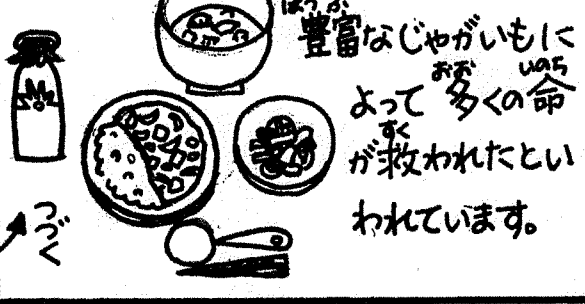 豊富なじゃがいもに
よって多くの命
が救われたとい
われています。
つづく